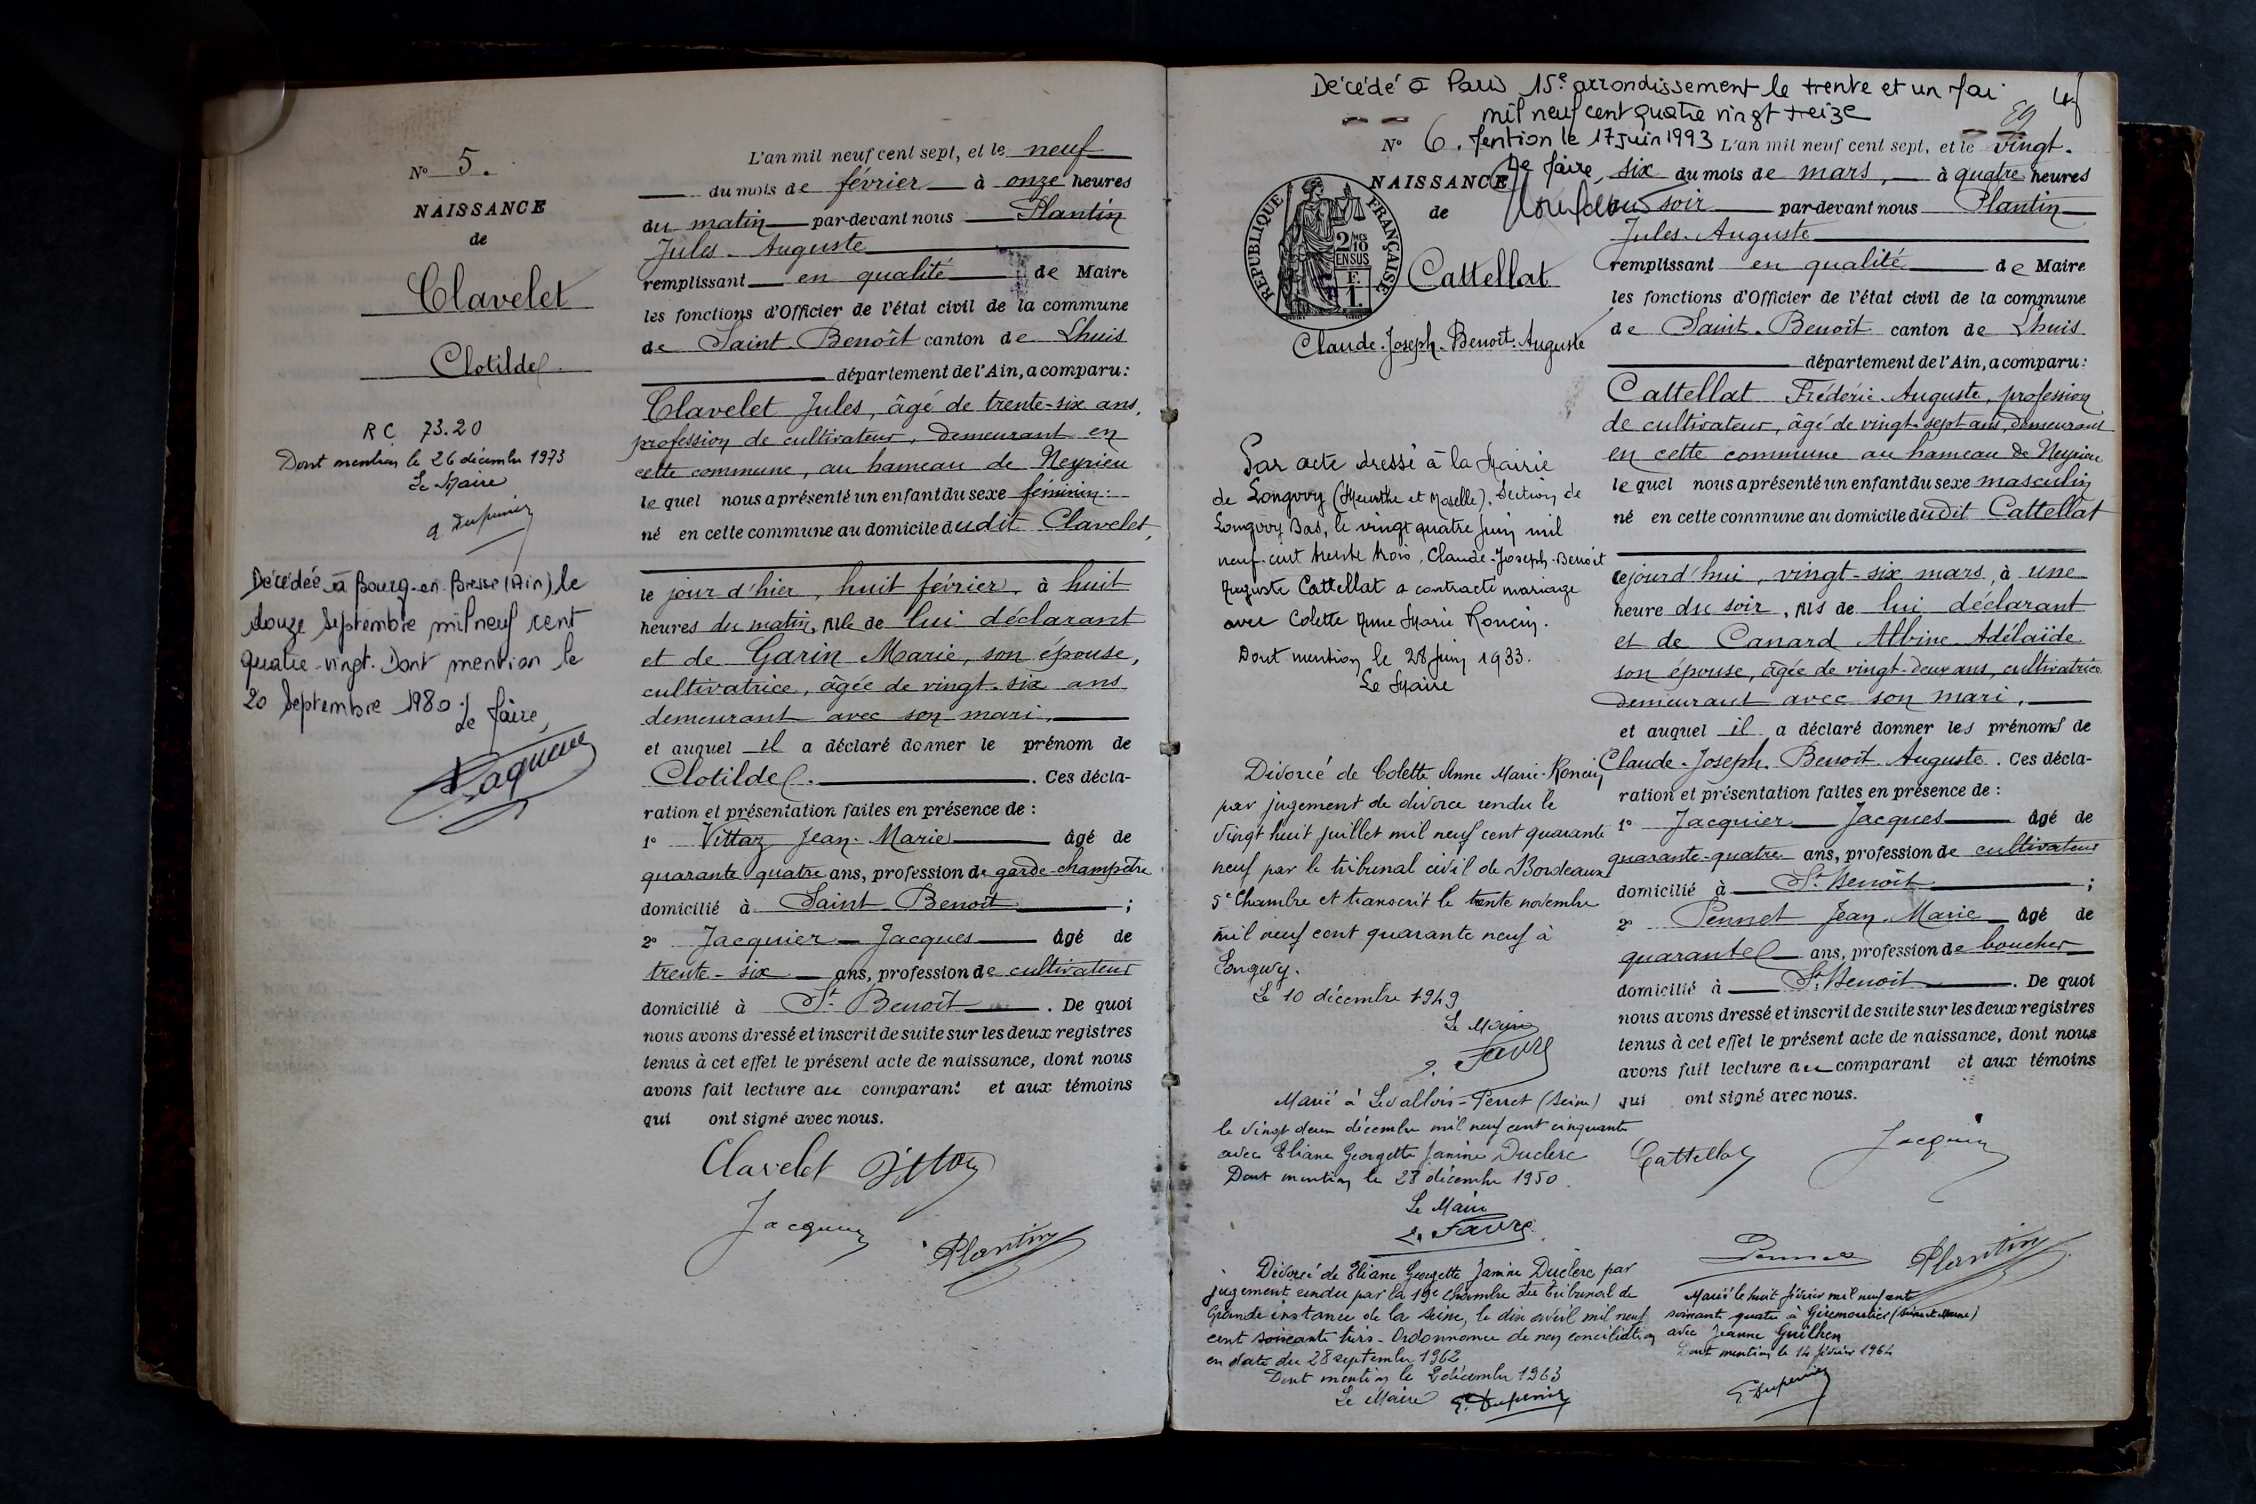 N° 5.
NAISSANCE
de
Clavelet
Clotilde.
R C 73.20
Dont mention le 26 décembre 1973
Le Maire
Décédée à Bourg-en-Bresse (Ain) le
douze Septembre mil neuf cent
quatre-vingt. Dont mention le
20 Septembre 1980.
Le Maire,
L'an mil neuf cent sept, et le neuf
du mois de février à onze heures
du matin par-devant nous Plantin
Jules-Auguste
remplissant en qualité de Maire
les fonctions d'Officier de l'état civil de la commune
de Saint-Benoît canton de Lhuis
département de l'Ain, a comparu:
Clavelet Jules, âgé de trente-six ans,
profession de cultivateur, demeurant en
cette commune, au hameau de Neyrieu
le quel nous a présenté un enfant du sexe féminin:
né en cette commune au domicile dudit Clavelet,
le jour d'hier, huit février, à huit
heures du matin, fille de lui déclarant
et de Garin Marie, son épouse,
cultivatrice, âgée de vingt-six ans
demeurant avec son mari,
et auquel il a déclaré donner le prénom de
Clotilde. Ces décla-
ration et présentation faites en présence de :
1° Vittoz Jean-Marie âgé de
quarante quatre ans, profession de garde-champêtre
domicilié à Saint Benoît ;
2° Jacquier Jacques âgé de
trente-six ans, profession de cultivateur
domicilié à St Benoît. De quoi
nous avons dressé et inscrit de suite sur les deux registres
tenus à cet effet le présent acte de naissance, dont nous
avons fait lecture au comparant et aux témoins
qui ont signé avec nous.
Clavelet Vittoz
Jacquier
Plantin
Décédé à Paris 15e arrondissement le trente et un Mai
mil neuf cent quatre vingt treize
Mention le 17 Juin 1993
Le Maire,
N° 6.
NAISSANCE
de
RÉPUBLIQUE FRANÇAISE
2/10 EN SUS
F.
1.
Cattellat
Claude-Joseph-Benoît-Auguste
Par acte dressé à la Mairie
de Longwy (Meurthe et Moselle). Section de
Longwy Bas, le vingt quatre Juin mil
neuf-cent trente trois, Claude-Joseph-Benoît
Auguste Cattellat a contracté mariage
avec Colette Anne Marie Roncin.
Dont mention le 28 Juin 1933.
Le Maire
Divorcé de Colette Anne Marie Roncin
par jugement de divorce rendu le
vingt huit juillet mil neuf cent quarante
neuf par le tribunal civil de Bordeaux
5e Chambre et transcrit le trente novembre
mil neuf cent quarante neuf à
Longwy.
Le 10 décembre 1949
Le Maire
Favre
Marié à Levallois-Perret (Seine)
le vingt deux décembre mil neuf cent cinquante
avec Eliane Georgette Janine Duclerc
Dont mention le 28 décembre 1950.
Le Maire
Favre
Divorcé de Eliane Georgette Janine Duclerc par
jugement rendu par la 19e chambre du tribunal de
Grande instance de la Seine, le dix avril mil neuf
cent soixante trois - Ordonnance de non conciliation
en date du 28 septembre 1962
Dont mention le 2 décembre 1963
Le Maire
L'an mil neuf cent sept, et le vingt-
six du mois de mars, à quatre heures
du soir par-devant nous Plantin
Jules-Auguste
remplissant en qualité de Maire
les fonctions d'Officier de l'état civil de la commune
de Saint-Benoît canton de Lhuis
département de l'Ain, a comparu:
Cattellat Frédéric-Auguste, profession
de cultivateur, âgé de vingt-sept ans, demeurant
en cette commune au hameau de Neyrieu
le quel nous a présenté un enfant du sexe masculin
né en cette commune au domicile dudit Cattellat
cejourd'hui, vingt-six mars, à une
heure du soir, fils de lui déclarant
et de Canard Albine Adélaïde
son épouse, âgée de vingt-deux ans, cultivatrice
demeurant avec son mari,
et auquel il a déclaré donner les prénoms de
Claude-Joseph-Benoît-Auguste. Ces décla-
ration et présentation faites en présence de :
1° Jacquier Jacques âgé de
quarante-quatre ans, profession de cultivateur
domicilié à St Benoît ;
2° Pennet Jean-Marie âgé de
quarante ans, profession de boucher
domicilié à St Benoît. De quoi
nous avons dressé et inscrit de suite sur les deux registres
tenus à cet effet le présent acte de naissance, dont nous
avons fait lecture au comparant et aux témoins
qui ont signé avec nous.
Cattellat Jacquier
Pennet Plantin
Marié le huit février mil neuf cent
soixante quatre à Giremoutiers (Seine et Marne)
avec Jeanne Guilhem
Dont mention le 14 février 1964